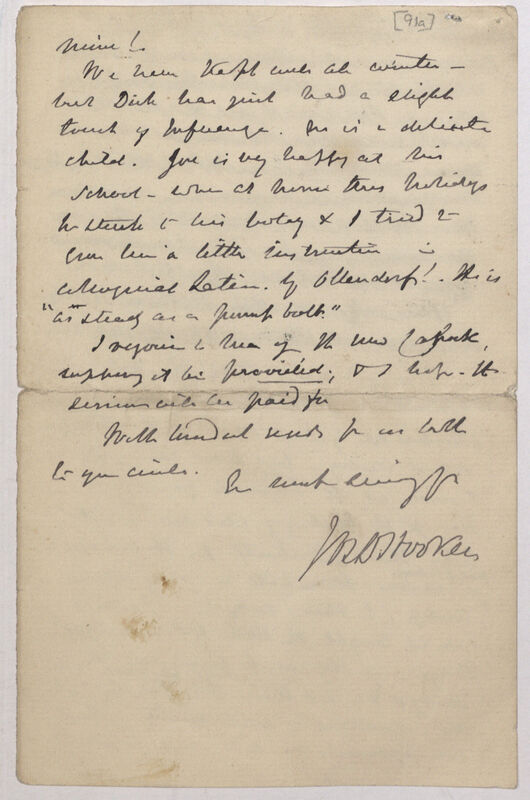 [91a]
mine!.
We have kept well all winter —
but Dick has just had a slight
touch of Influenza. He is a delicate
child. Joe is very happy at his
school — when at home these holidays
he stuck to his botany & I tried to
give him a little instruction in
colloquial Latin. by Ollendorf!. He is
"as steady as a pump bolt."
I rejoice to hear of the new
supposing it be provided; & I hope the
will be paid for
With kindest regards from us both
to your circle.
Ever most sincerely yrs
J D Hooker